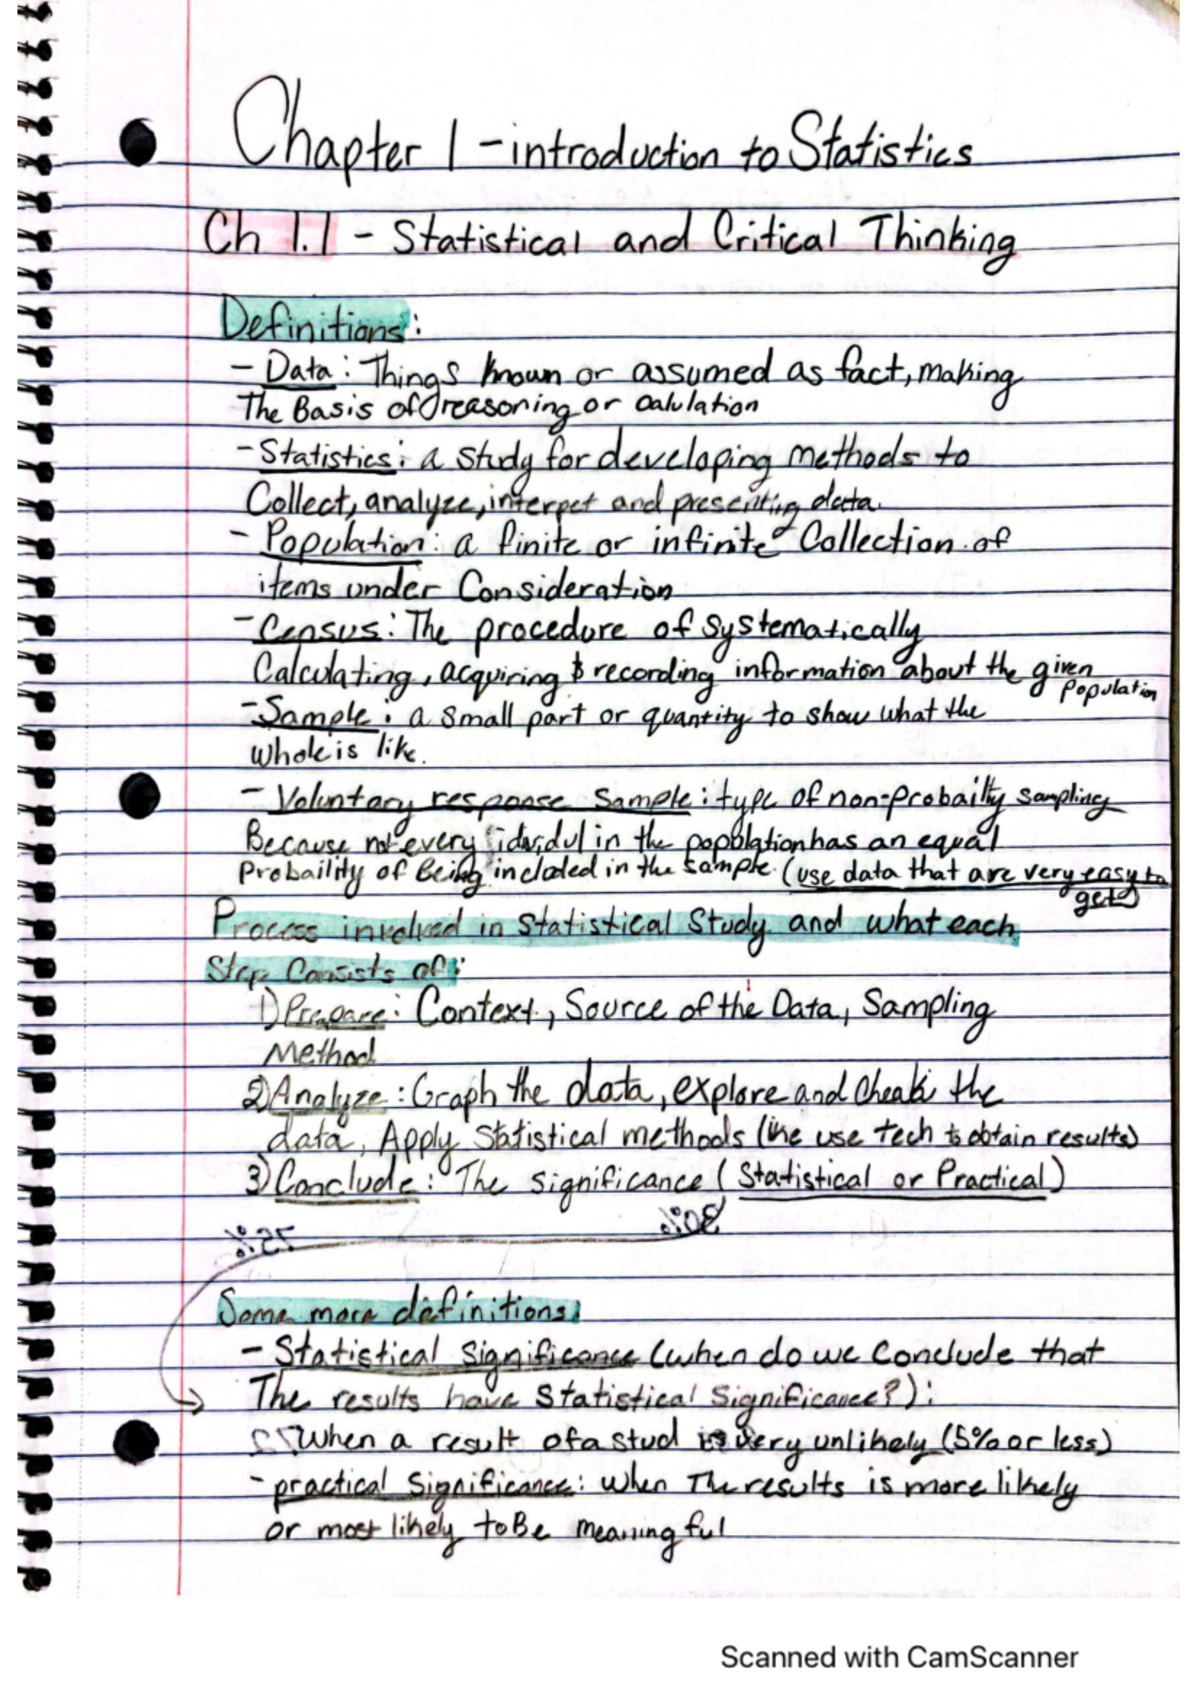 Chapter 1 - introduction to Statistics
Ch 1.1 - Statistical and Critical Thinking
Definitions:
- Data: Things known or assumed as fact, making
The Basis of reasoning or calulation
- Statistics: a study for developing methods to
Collect, analyze, interpet and presenting data.
- Population: a finite or infinite Collection of
items under Consideration
- Census: The procedure of systematically
Calculating, acquiring & recording information about the given
population
- Sample: a small part or quantity to show what the
whole is like.
- Voluntary response sample: type of non-probailty sampling
Because not every idividul in the popolation has an equal
Probaility of Being included in the sample. (use data that are very easy to
get)
Process involved in Statistical Study and what each
Step Consists of:
1) Prepare: Context, Source of the Data, Sampling
Method
2) Analyze: Graph the data, explore and Cheak the
data, Apply Statistical methods (like use tech to obtain results)
3) Conclude: The significance (Statistical or Practical)
75% 30%
Some more definitions:
- Statistical Significance (when do we Conclude that
The results have Statistical Significance?):
When a result of a stud is very unlikely (5% or less)
- practical Significance: when The results is more likely
or most likely to Be meaningful
Scanned with CamScanner